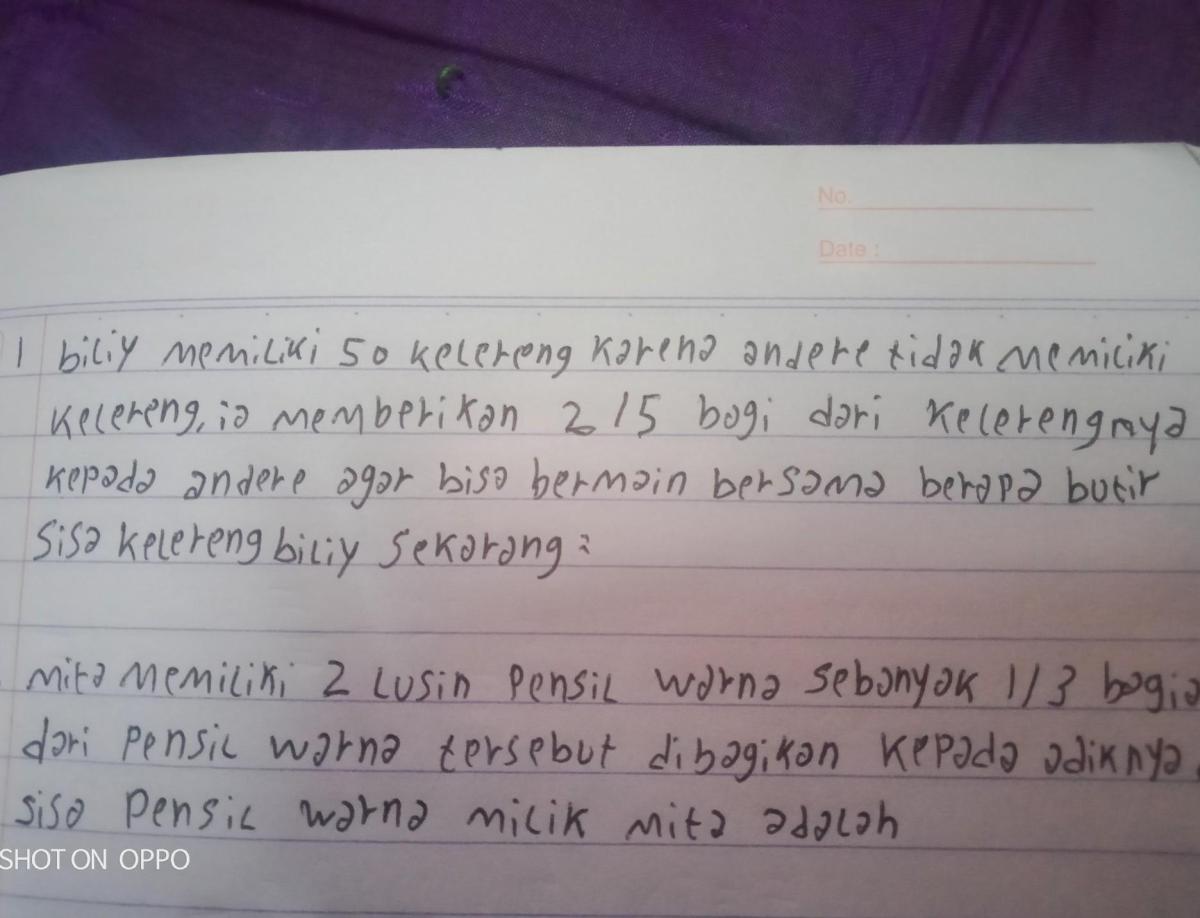 No.
Date :
1 biliy memiliki 50 kelereng karena andere tidak memiliki
kelereng, ia memberikan 2/5 bagi dari kelerengnya
kepada andere agar bisa bermain bersama berapa butir
sisa kelereng biliy sekarang?
mita memiliki 2 lusin pensil warna sebanyak 1/3 bagia
dari pensil warna tersebut dibagikan kepada adiknya.
sisa pensil warna milik mita adalah
SHOT ON OPPO